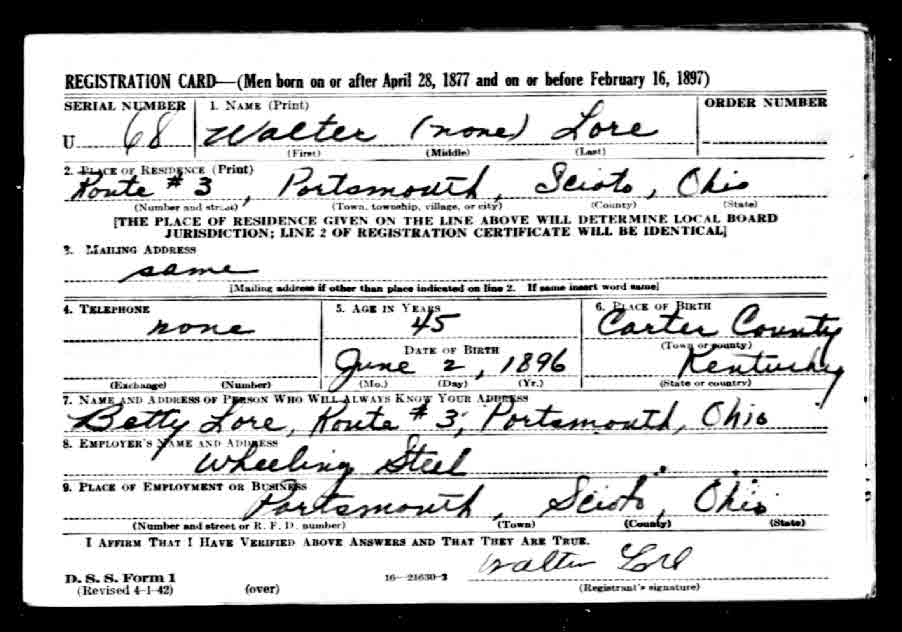 REGISTRATION CARD—(Men born on or after April 28, 1877 and on or before February 16, 1897)
SERIAL NUMBER 1. NAME (Print) ORDER NUMBER
U 68 Walter (none) Lore
(First) (Middle) (Last)
2. PLACE OF RESIDENCE (Print)
Route # 3, Portsmouth, Scioto, Ohio
(Number and street) (Town, township, village, or city) (County) (State)
[THE PLACE OF RESIDENCE GIVEN ON THE LINE ABOVE WILL DETERMINE LOCAL BOARD
JURISDICTION; LINE 2 OF REGISTRATION CERTIFICATE WILL BE IDENTICAL]
3. MAILING ADDRESS
same
[Mailing address if other than place indicated on line 2. If same insert word same]
4. TELEPHONE 5. AGE IN YEARS 6. PLACE OF BIRTH
none 45 Carter County
DATE OF BIRTH (Town or county)
June 2, 1896 Kentucky
(Exchange) (Number) (Mo.) (Day) (Yr.) (State or country)
7. NAME AND ADDRESS OF PERSON WHO WILL ALWAYS KNOW YOUR ADDRESS
Betty Lore, Route # 3, Portsmouth, Ohio
8. EMPLOYER'S NAME AND ADDRESS
Wheeling Steel
9. PLACE OF EMPLOYMENT OR BUSINESS
Portsmouth, Scioto, Ohio
(Number and street or R. F. D. number) (Town) (County) (State)
I AFFIRM THAT I HAVE VERIFIED ABOVE ANSWERS AND THAT THEY ARE TRUE.
Walter Lore
D. S. S. Form 1 16—21630-2
(Revised 4-1-42) (over) (Registrant's signature)